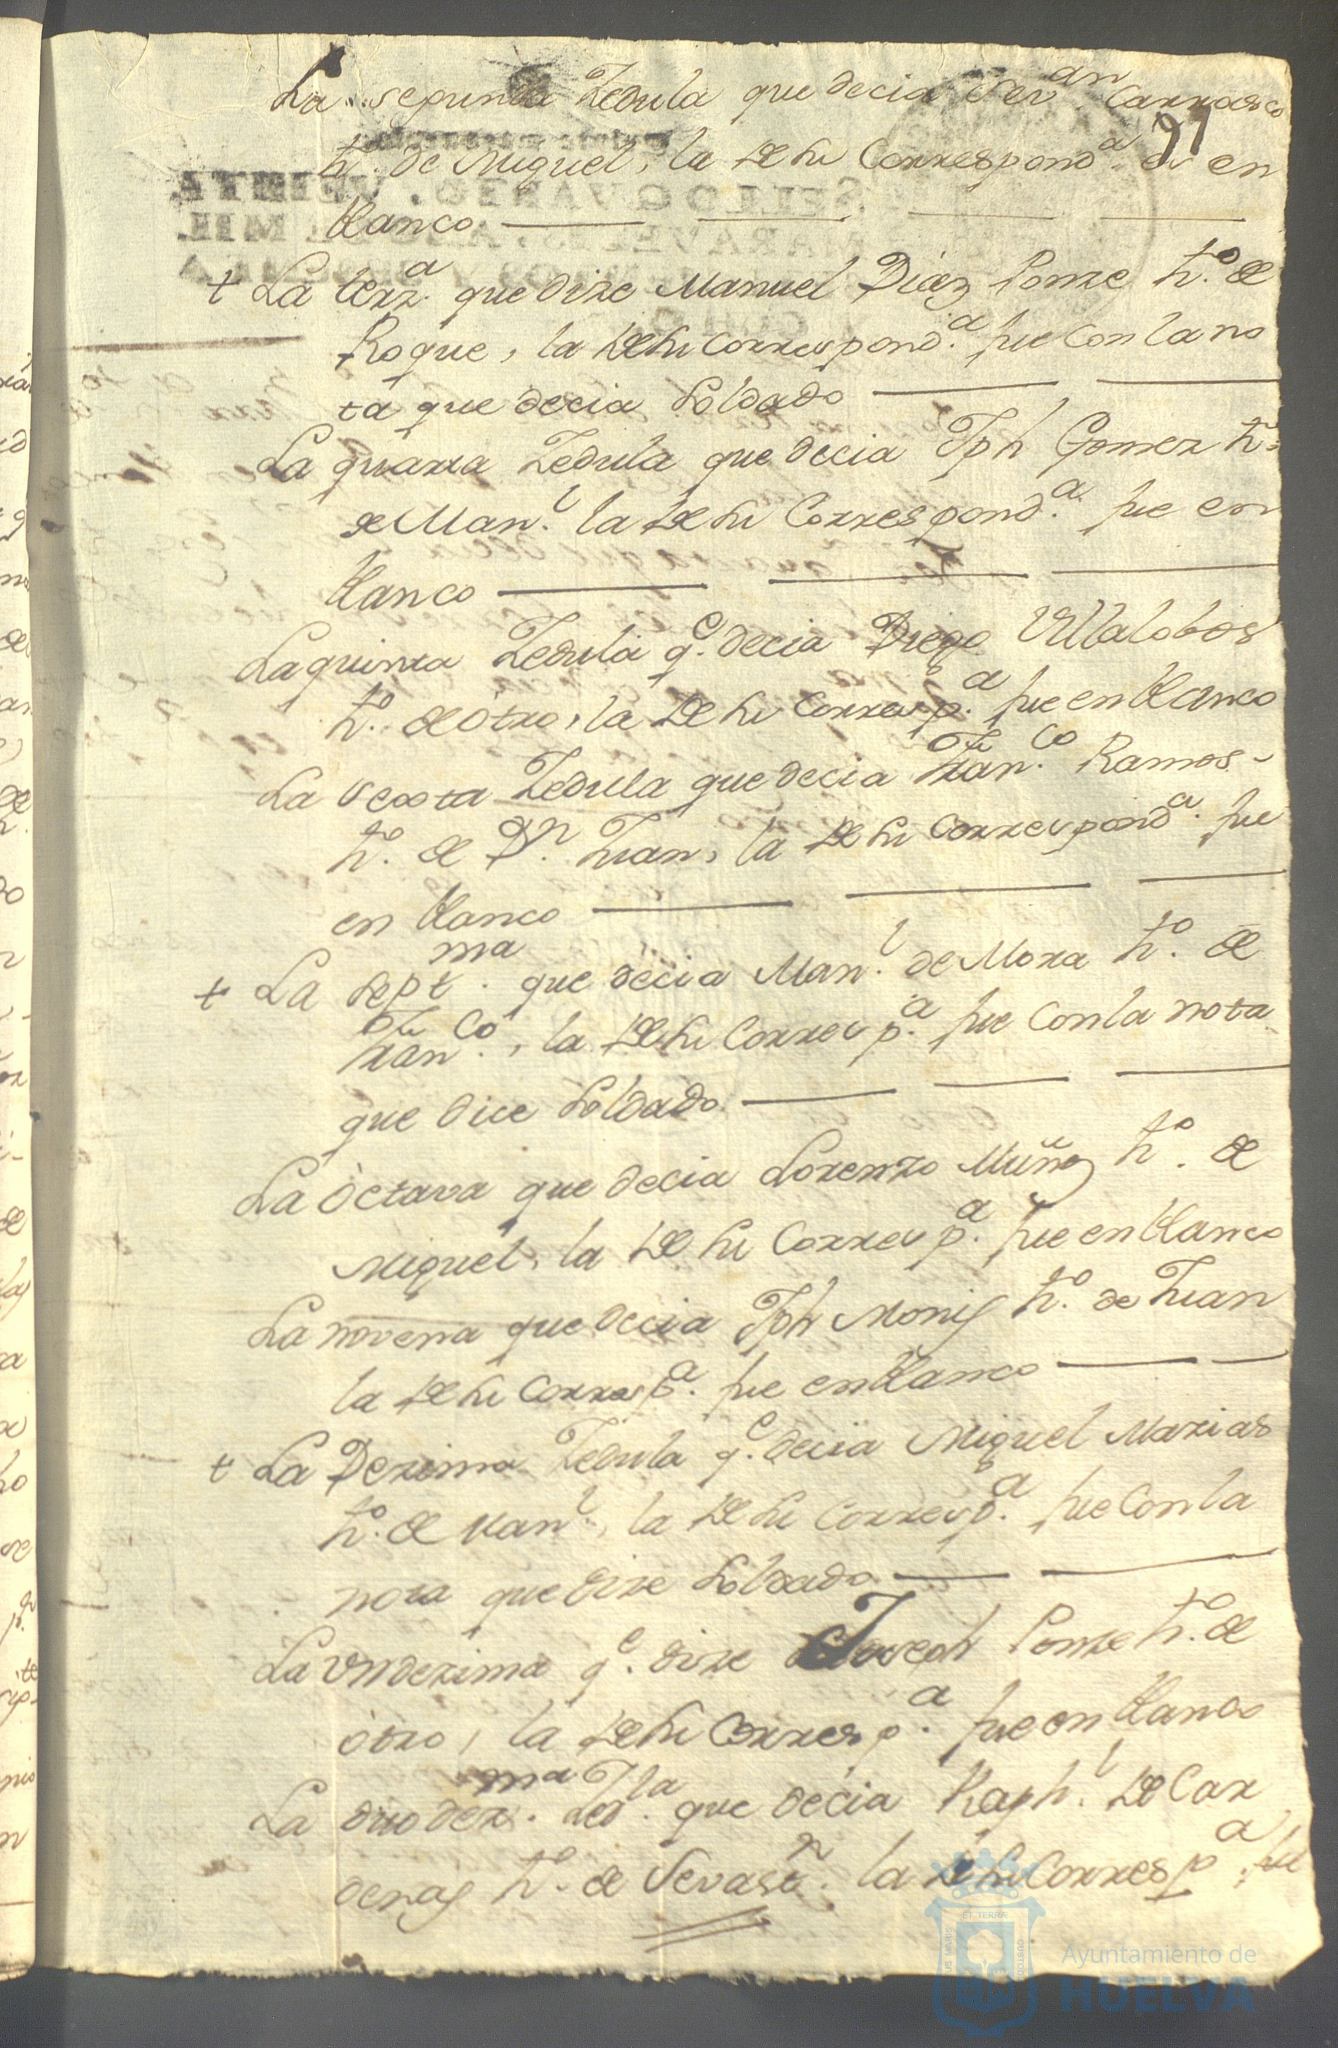 La segunda Zedula que decia Sev.an Carrasco
97
h.o de Miguel, la de su Correspond.a en
blanco
+ La terz.a que dize Manuel Diaz Ponze h.o de
Roque, la de su correspond.a fue con la no
ta que decia Soldado
La quarta Zedula que decia Jph Gomez h.o
de Man.l la de su Correspond.a fue en
blanco
La quinta Zedula q.e decia Diego Villalobos
h.o de òtro, la de su Corresp.a fue en blanco
La sexta Zedula que decia Fran.co Ramos
h.o de D.n Juan, la de su Correspond.a fue
en blanco
+ La sept.ma que decia Man.l de Mora h.o de
Fran.co, la de su Corresp.a fue con la nota
que dice Soldado
La Octava que decia Lorenzo Muñoz h.o de
Miguel, la de su Corresp.a fue en blanco
La novena que decia Jph Moniz h.o de Juan
la de su Corresp.a fue en blanco
+ La Dezima Zedula q.e decia Miguel Marias
h.o de Man.l, la de su Corresp.a fue con la
nota que dize Soldado
La Undezima q.e dize Joseph Ponze h.o de
òtro, la de su Corresp.a fue en blanco
La duodez.ma Zed.la que decia Raph.l de Car
denas h.o de Sevast.n la de su Corresp.a fue
Ayuntamiento de
HUELVA